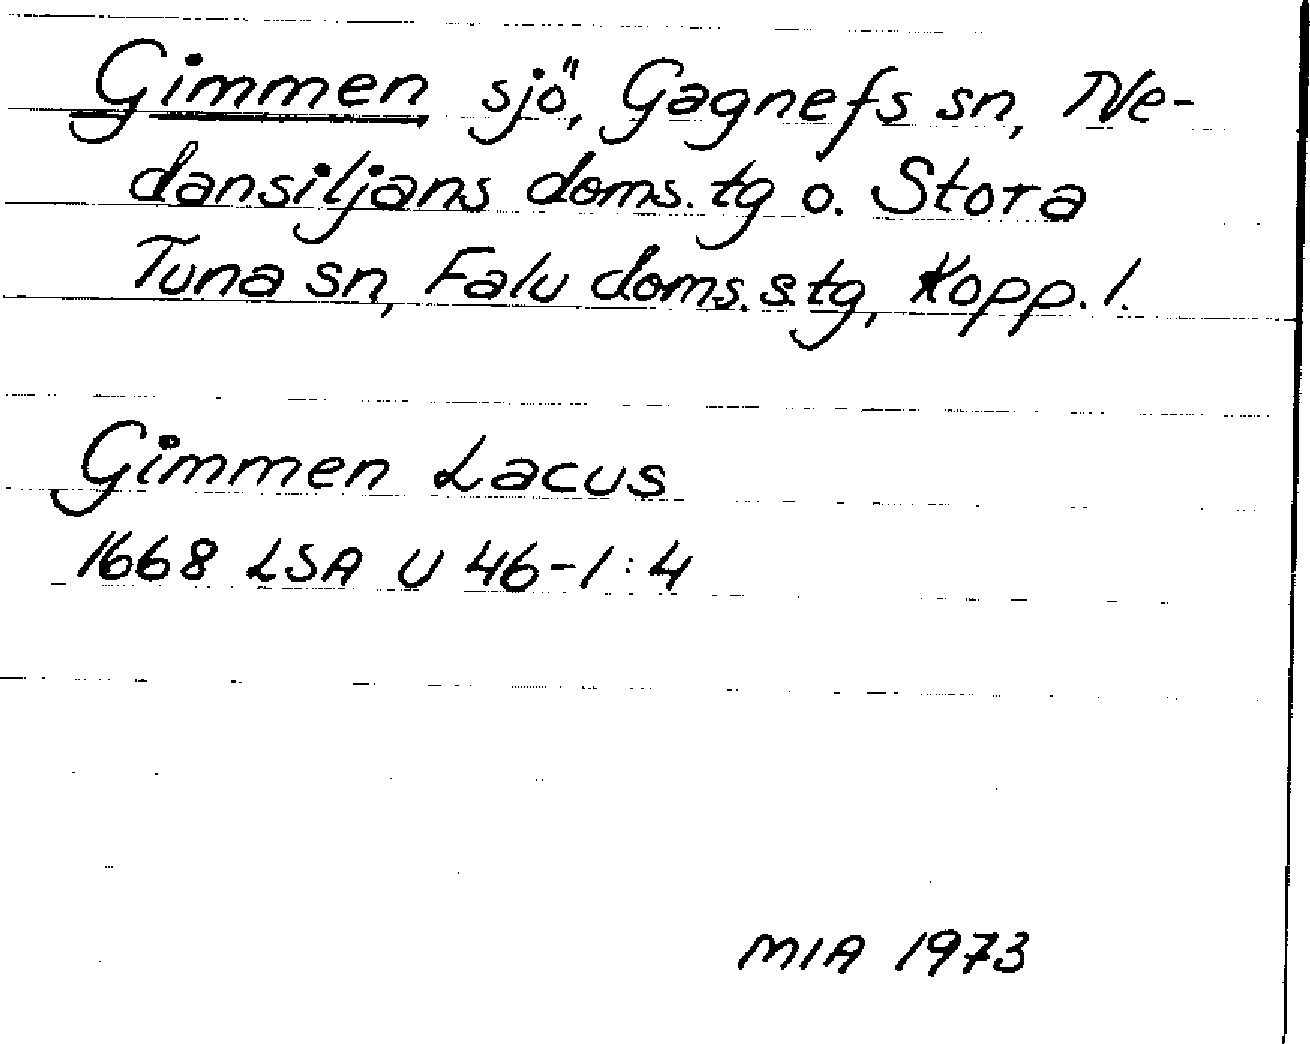 Gimmen sjö, Gagnefs sn, Ne-
dansiljans doms. tg o. Stora
Tuna sn, Falu doms. s. tg, Kopp. l.
Gimmen Lacus
1668 LSA U 46-1:4
MIA 1973